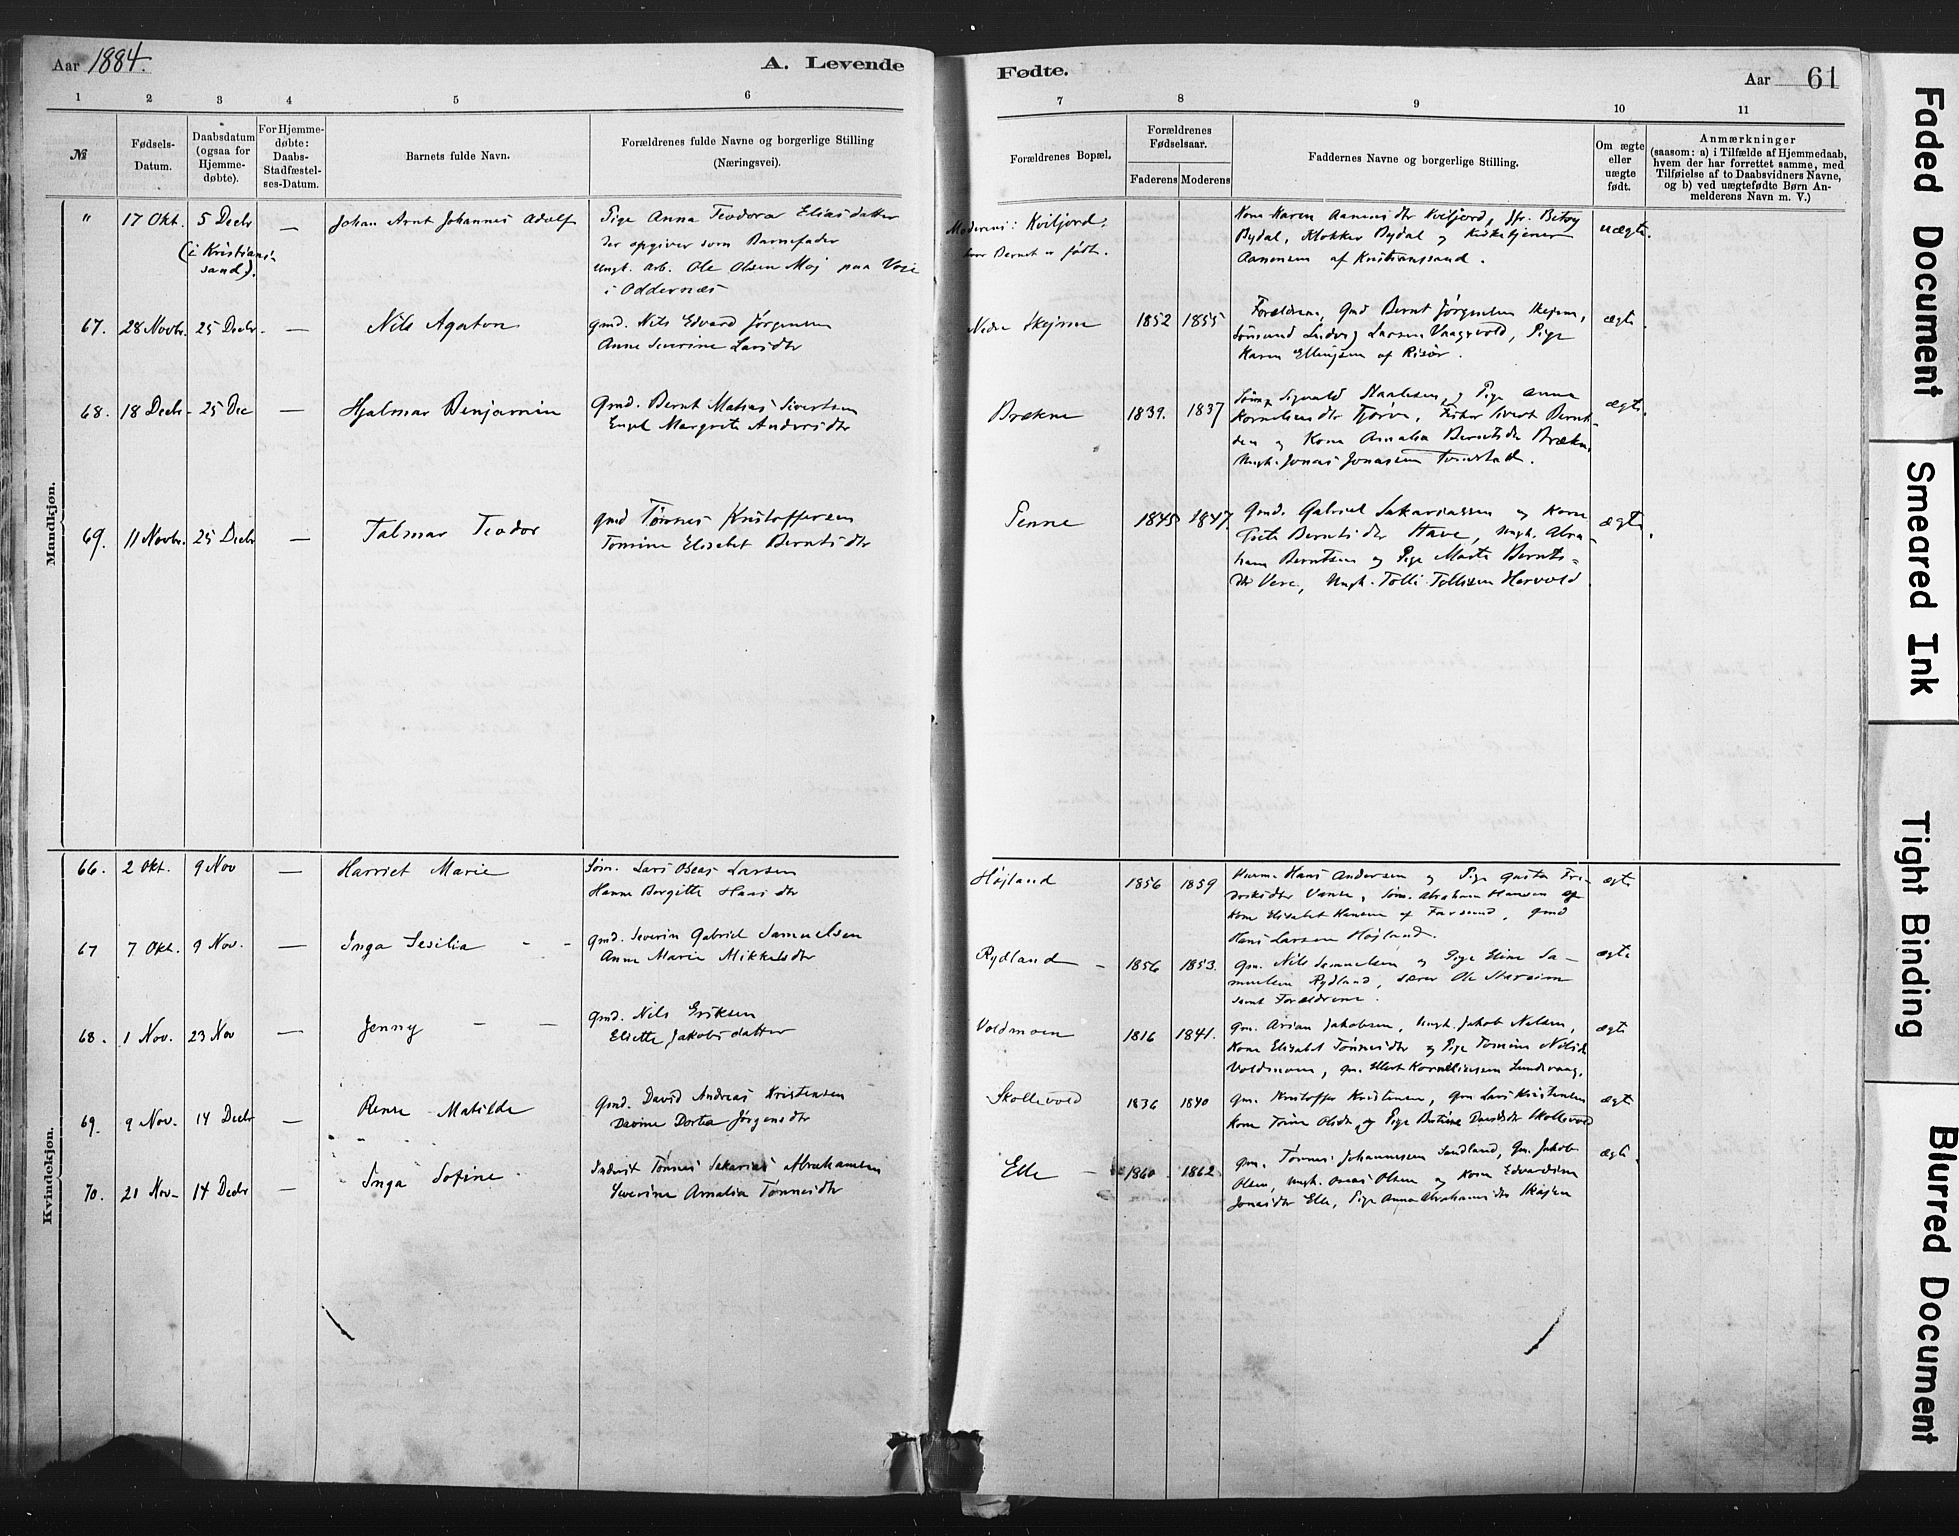 Aar 1884.
A. Levende
Fødte.
Aar 61
1 2 3 4 5 6 7 8 9 10 11
№
Fødsels-
Datum.
Daabsdatum
(ogsaa for
Hjemme-
døbte).
For Hjemme-
døbte:
Daabs-
Stadfæstel-
ses-Datum.
Barnets fulde Navn.
Forældrenes fulde Navne og borgerlige Stilling
(Næringsvei).
Forældrenes Bopæl.
Forældrenes
Fødselsaar.
Faderens Moderens
Faddernes Navne og borgerlige Stilling.
Om ægte
eller
uægte
født.
Anmærkninger
(saasom: a) i Tilfælde af Hjemmedaab,
hvem der har forrettet samme, med
Tilføielse af to Daabsvidners Navne,
og b) ved uægtefødte Børn An-
melderens Navn m. V.)
Mandkjøn.
" 17 Okt. 5 Decbr
(i Kristian-
sand).
— Johan Arnt Johannes Adolf
Pige Anna Teodora Eliasdatter
der opgiver som Barnefader
Ungk. arb. Ole Olsen Moj paa Voie
i Oddernæs
Moderens: Kviljord,
hvor Barnet er født.
Kone Karen Aanensdtr Kviljord, Jfr. Betsy
Bydal, Klokker Bydal og Kirketjener
Aanensen af Kristianssand.
uægte.
67. 28 Novbr. 25 Decbr. — Nils Agaton
Gmd. Nils Edvard Jørgensen
Anne Severine Larsdtr
Nedre Skejme 1852 1855
Forældrene, Gmd Bernt Jørgensen Skejme,
Sømand Ludvig Larsen Vaagsvold, Pige
Karen Ellingsen af Risør.
ægte.
68. 18 Decbr - 25 Dec — Hjalmar Benjamin
Gmd. Bernt Matias Sivertsen
Engel Margrete Andersdtr
Brækne 1839. 1837
Sømd Sigvald Staalesen, og Pige Anna
Korneliusdtr Tjørve, Fisker Sivert Bernt-
sen og Kone Amalia Berntsdtr Brækne,
Ungk. Jonas Jonasen
ægte.
69. 11 Novbr. 25 Decbr — Talmar Teodor
Gmd Tønnes Kristoffersen
Tomine Elisabet Berntsdtr
Penne 1845 1847
Gmd. Gabriel Sakariassen og Kone
Berntsdtr Have, Ungk. Abra-
ham Berntsen og Pige Marte Bernts-
dtr Vere, Ungk. Tolli Tollisen Hervold
ægte.
Kvindekjøn.
66. 2 Okt. 9 Nov — Harriet Marie
Søm. Lars Oseas Larsen
Hanne Borgitte Hansdtr
Højland 1856 1859
Hans Andersen og Pige Gusta Fre-
driksdtr Vanse, Søm. Abraham Hansen og
Kone Elisabet Hansen af Farsund, Gmd
Hans Larsen Højland.
ægte
67 7 Okt. 9 Nov. — Inga Sesilia - -
Gmd. Severin Gabriel Samuelsen
Anne Marie Mikkelsdtr
Rydland - 1856 1853.
Gm. Nils Samuelsen og Pige Eline Sa-
muelsen Rydland, Lærer Ole
samt Forældrene.
ægte
68. 1 Nov. 23 Nov — Jenny - -
Gmd. Nils Eriksen
Elsette Jakobsdatter
Voldmoen 1816 1841.
Gm. Arian Jakobsen, Ungk. Jakob Nilsen,
Kone Elisabet Tønnesdtr og Pige Tomine Nilsdr
Voldmoen, Gm. Ellert Korneliussen Lundevaag.
ægte
69. 9 Nov. 14 Decbr — Rense Matilde
Gmd. David Andreas Kristensen
Davine Dortea Jørgensdtr
Skollevold 1836 1840
Gm. Kristoffer Kristensen, Gm Lars Kristensen
Kone Tomine Olsdr, og Pige Davidsdtr Skollevold
ægte
70. 21 Nov - 14 Decbr — Inga Sofine
Inderst Tønnes Sakarias Abrahamsen
Severine Amalia Tønnesdtr
Elle - 1860 1862
Gm. Tønnes Johannessen Sandland, Gm. Jakob
Olsen, Ungk. Oseas Olsen og Kone Edvardine
Jonasdtr Elle, Pige Anna Abrahamsdtr Skejme
ægte.
Faded Document
Smeared Ink
Tight Binding
Blurred Document